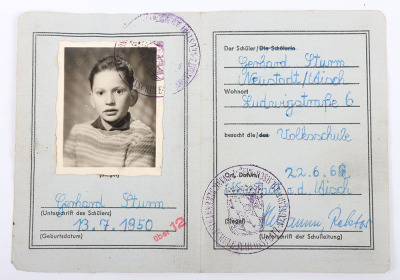 Gerhard Sturm
(Unterschrift des Schülers)
13. 7. 1950
(Geburtsdatum)
über 12
Der Schüler/Die Schülerin
Gerhard Sturm
Neustadt/Aisch
Wohnort
Ludwigstraße 6
besucht die/das Volksschule
Ort, Datum
22.6.
a.d. Aisch
(Siegel)
Rektor
(Unterschrift der Schulleitung)